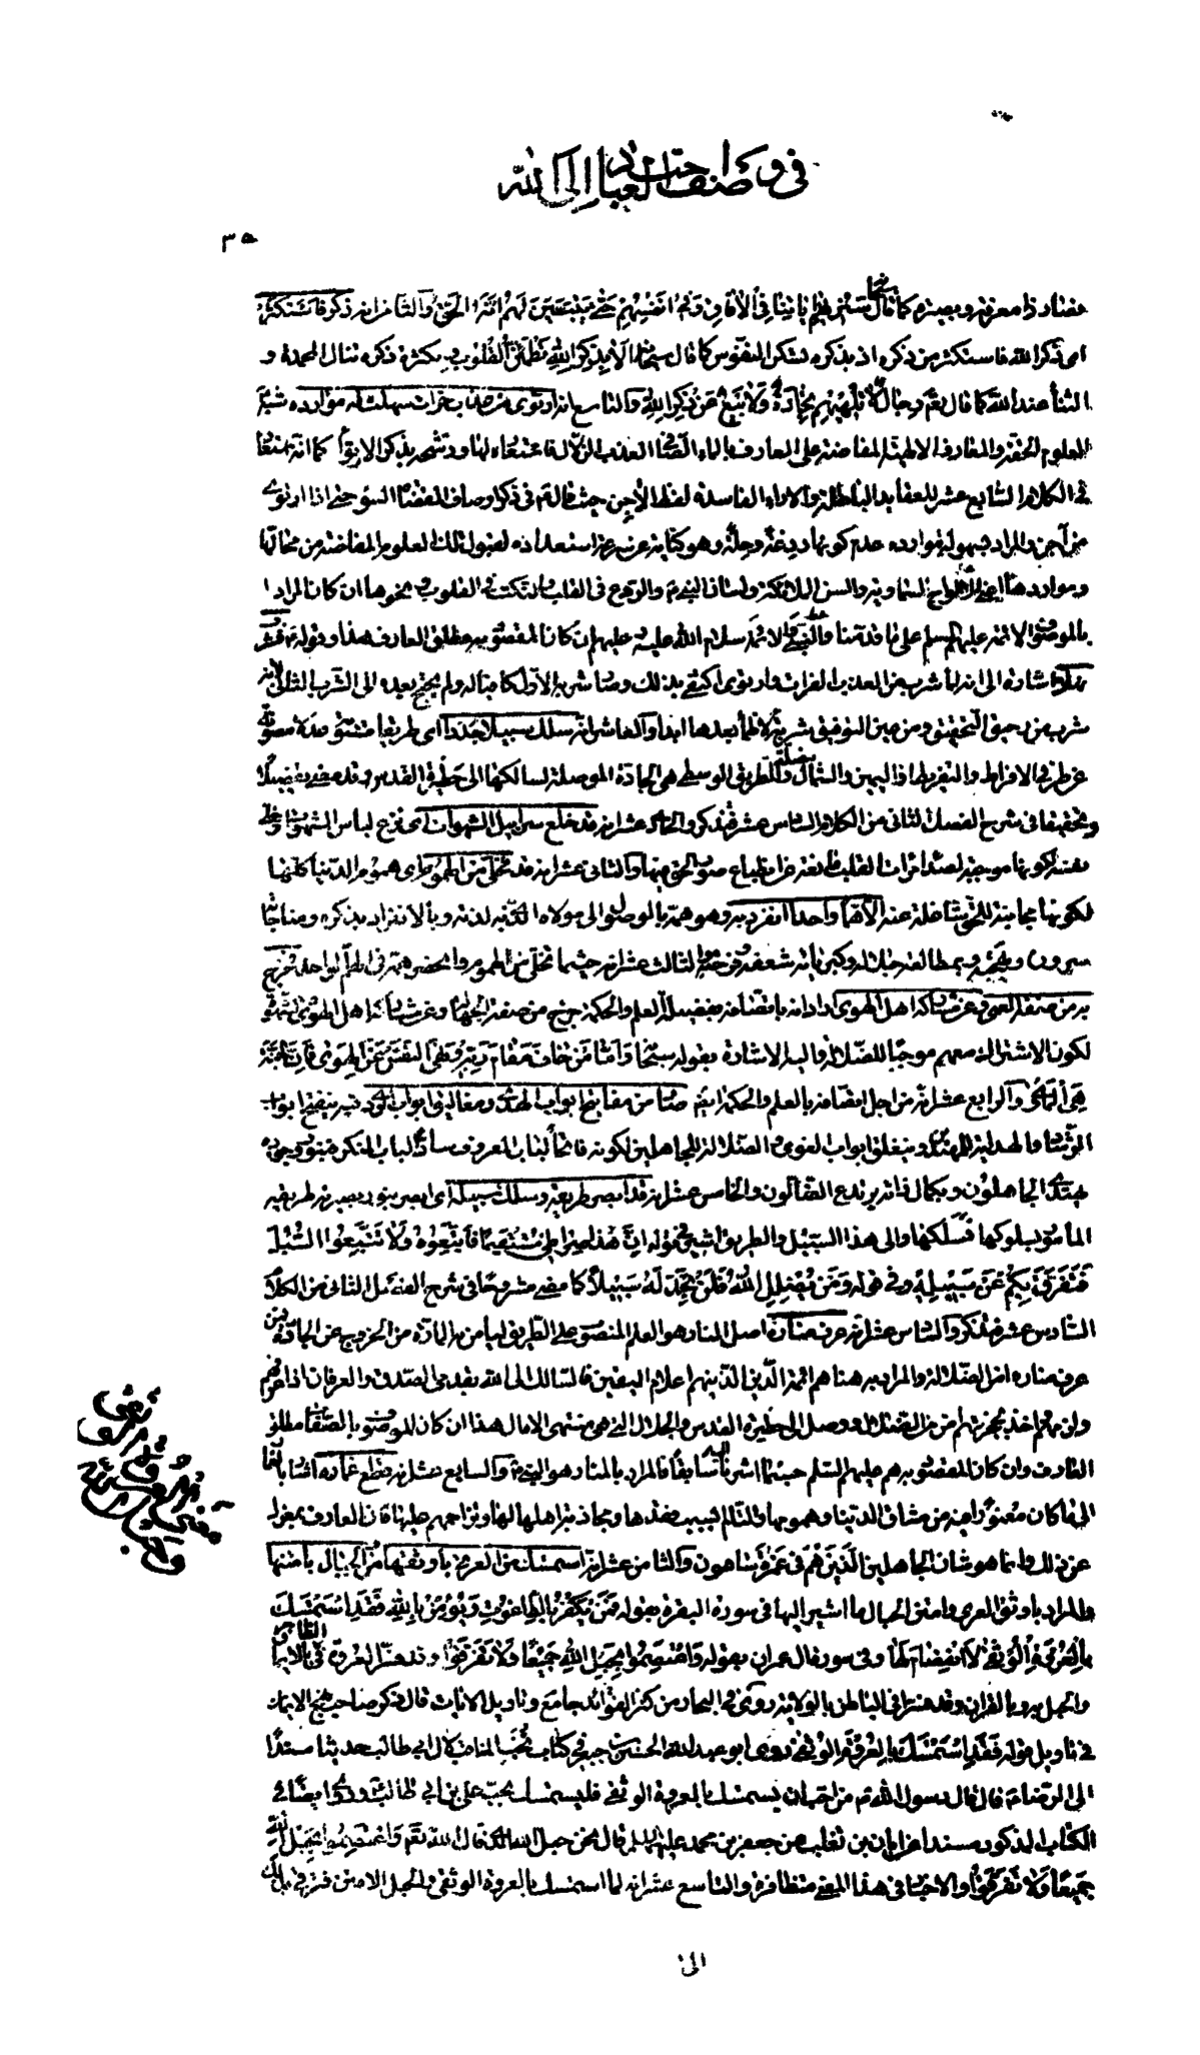 في وصف احب العباد الى الله
٣٥
معرفة وبصيرة كما قال سبحانه سنريهم اياتنا في الافاق وفي انفسهم حتى يتبين لهم انه الحق والثامن انه ذكر فاستكثر
اى ذكر الله فاستكثر من ذكره اذ بذكره تسكن النفوس كما قال سبحانه الا بذكر الله تطمئن القلوب وبكثرة ذكره تنال المحمدة و
الثناء عند الله كما قال تعالى رجال لا تلهيهم تجارة ولا بيع عن ذكر الله والتاسع انه ارتوى من عذب فرات سهلت له موارده شبه
العلوم الحقة والمعارف الالهية المفاضة على العارف بالماء العذب الزلال فاستعار لها ورشح بذكر الارتواء كما انه
في الكلام السابع عشر للعقايد الباطلة والاراء الفاسدة لفظ الاجن حيث قال في ذكر اوصاف القضاة السوء حتى اذا ارتوى
من آجن والمراد بسهولة موارده عدم كونها ردغة وحلة وهو كناية عن سرعة استعداده لقبول تلك العلوم المفاضة من محالها
ومواردها اعنى الالواح السماوية والسن الملائكة ولسان النبي والوقوع في القلب والنكت في القلوب ونحوها ان كان المراد
بالموصوف الائمة عليهم السلم على ما قدمنا والنبي والائمة سلام الله عليه وعليهم ان كان المقصود به مطلق العارف هذا وقوله فشرب
نهلا اشارة الى انه لما شرب من العذب الفرات وارتوى اكتفى بذلك وصار شربه الاول كافيا له ولم يحتج بعده الى الشرب الثاني لانه
شرب من رحيق التحقيق ومن عين التوفيق شربة لا ظمأ بعدها ابدا والعاشر انه سلك سبيلا جددا اى طريقا مستوية مصونة
عن طرفي الافراط والتفريط اذ اليمين والشمال مضلة والطريق الوسطى هي الجادة الموصلة لسالكها الى حظيرة القدس وقد مضى تفصيلا
وتحقيقا في شرح الفصل الثاني من الكلام السادس عشر فتذكر والحادي عشر انه قد خلع سرابيل الشهوات اى نزع لباس الشهوات
نفسه لكونها موجبة لصداء مرات القلب مانعة عن انطباع صور الحق فيها والثاني عشر انه قد تخلى من الهموم اى هموم الدنيا كلها
لكونها مجانبة للحق شاغلة عنه الا هما واحدا انفرد به وهو همه بالوصول الى مولاه الذي به لذته وبالانفراد بذكره ومناجاته
سروره وبمطالعة جلاله وكبريائه شعفه والثالث عشر انه حيثما تخلى من الهموم وانحصر همه في الهم الواحد خرج
به من صفة العمى وعن مشاركة اهل الهوى اراد انه باتصافه بفضيلة العلم والحكمة خرج من صفة الجهالة وعن مشاركة اهل الهوى والشهوة
لكون الاشتراك معهم موجبا للضلالة واليه الاشارة بقوله سبحانه واما من خاف مقام ربه ونهى النفس عن الهوى فان الجنة
هي المأوى والرابع عشر انه من اجل اتصافه بالعلم والحكمة ايضا صار من مفاتيح ابواب الهدى ومغاليق ابواب الردى فبه ينفتح ابواب
الرشاد والهداية للمهتدين وينغلق ابواب الغوى والضلالة للجاهلين لكونه فاتحا لباب المعروف سادا لباب المنكر فبنور وجوده
يهتدى الجاهلون وبكمال ذاته يرتدع الضالون والخامس عشر انه قد ابصر طريقه وسلك سبيله اى ابصر بنور بصيرته طريقه
المأمور بسلوكها فسلكها والى هذا السبيل والطريق اشير في قوله ان هذا صراطى مستقيما فاتبعوه ولا تتبعوا السبل
فتفرق بكم عن سبيله وفي قوله ومن يضلل الله فلن تجد له سبيلا كما مضى مشروحا في شرح الفصل الثاني من الكلام
السادس عشر فتذكر والسادس عشر انه عرف مناره اصل المنار هو العلم المنصوب على الطريق ليأمن به المارة من الخروج عن الجادة فمن
عرف مناره امن الضلالة والمراد به هنا هم ائمة الدين الذينهم اعلام اليقين فالسالك الى الله بقدمى الصدق والعرفان اذا عرفهم
ولزمهم واخذ بحجزتهم امن من الضلال ووصل الى حظيرة القدس والجلال التي هي منتهى الامال هذا ان كان الموصوف بالصفات مطلق
العارف وان كان المقصود به هم عليهم السلم حسبما اشرنا اليه سابقا فالمراد بالمنار هو النبي والسابع عشر انه قطع غماره اشار بالغمار
الى ما كان مغمورا فيه من مشاق الدنيا وهمومها والتألم بسبب فقدها ومجاذبة اهلها لها وتزاحمهم عليها فان العارف بمعزل
عن ذلك وانما هو شان الجاهلين الذين هم في غمرة ساهون والثامن عشر انه استمسك من العرى باوثقها ومن الحبال بامتنها
والمراد باوثق العرى وامتن الحبال ما اشير اليها في سورة البقرة بقوله فمن يكفر بالطاغوت ويؤمن بالله فقد استمسك
بالعروة الوثقى لا انفصام لها وفي سورة ال عمران بقوله واعتصموا بحبل الله جميعا ولا تفرقوا وقد فسر العروة في الظاهر بالايمان
والحبل به وبالقران وقد فسرتا في الباطن بالولاية روى في البحار من كنز الفوائد جامع وتاويل الايات قال ذكر صاحب نهج الايمان
في تاويل قوله فقد استمسك بالعروة الوثقى روى ابو عبد الله الحسين بن جبير في كتاب نخب المناقب لآل ابي طالب حديثا مسندا
الى الرضا قال قال رسول الله من احب ان يستمسك بالعروة الوثقى فليستمسك بحب علي بن ابي طالب وروى ايضا في
الكتاب المذكور مسندا عن ابان بن تغلب عن جعفر بن محمد عليهما السلم قال نحن حبل الله الذي قال الله تعالى واعتصموا بحبل الله
جميعا ولا تفرقوا والاخبار في هذا المعنى متظافرة والتاسع عشر انه لما استمسك بالعروة الوثقى والحبل الامتن فترقى بذلك
الى